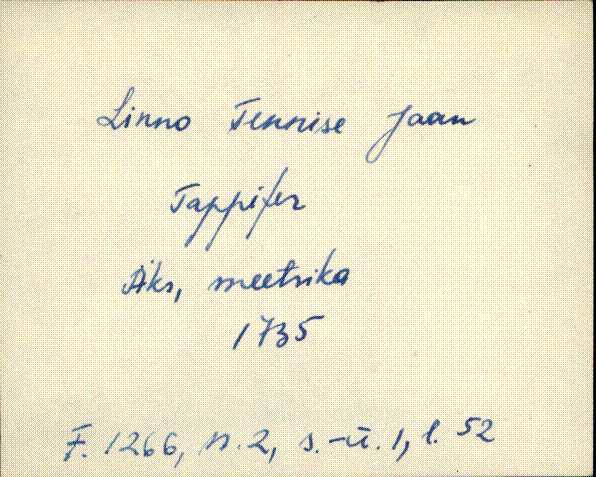 Linno Tennise Jaan
Tappifer
Äks, meetrika
1735
F. 1266, n. 2, s.-ü. 1, l. 52